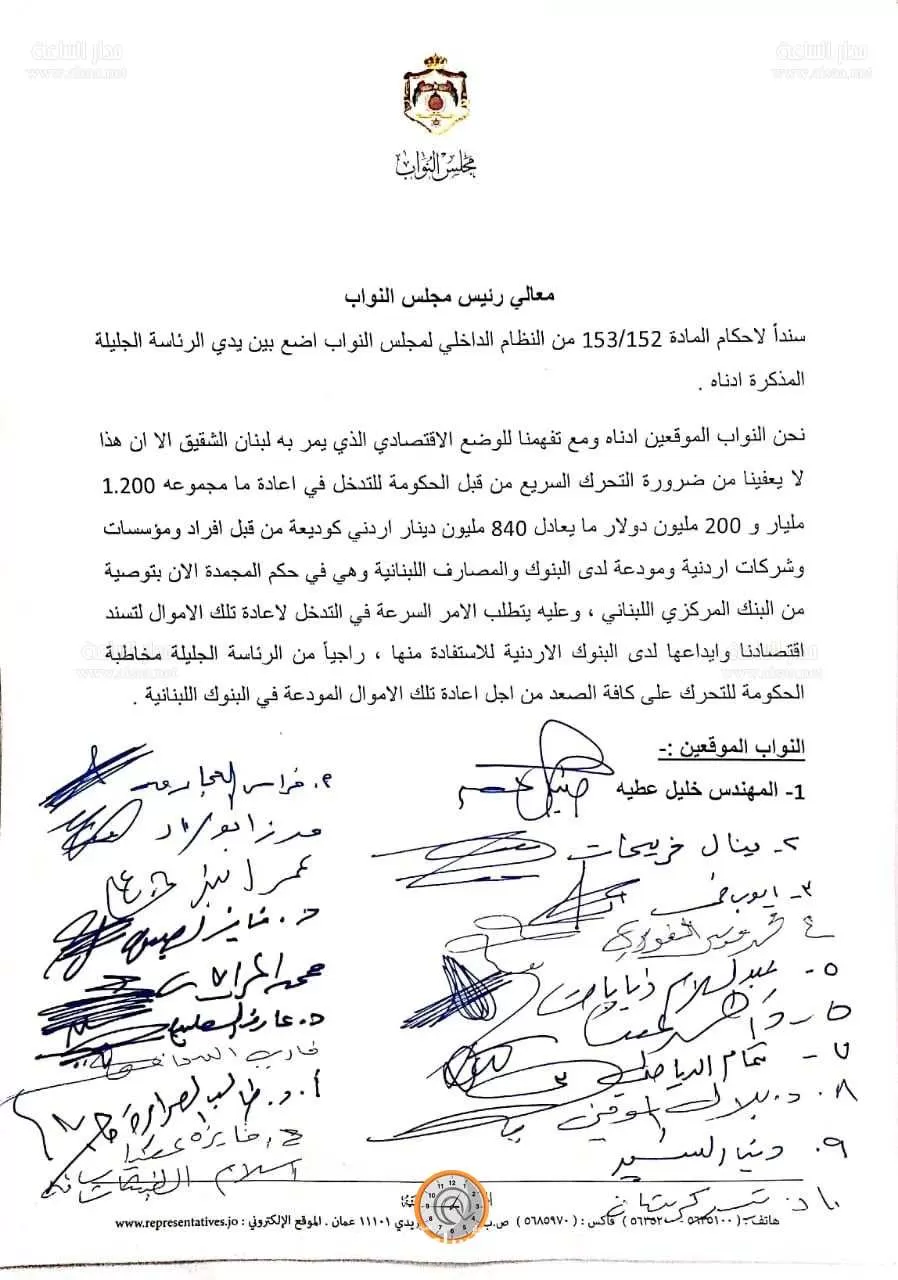 مدار الساعة
www.alsaa.net
مدار الساعة
www.alsaa.net
مجلس النواب
معالي رئيس مجلس النواب
سنداً لاحكام المادة 153/152 من النظام الداخلي لمجلس النواب اضع بين يدي الرئاسة الجليلة
المذكرة ادناه .
نحن النواب الموقعين ادناه ومع تفهمنا للوضع الاقتصادي الذي يمر به لبنان الشقيق الا ان هذا
لا يعفينا من ضرورة التحرك السريع من قبل الحكومة للتدخل في اعادة ما مجموعه 1.200
مليار و 200 مليون دولار ما يعادل 840 مليون دينار اردني كوديعة من قبل افراد ومؤسسات
وشركات اردنية ومودعة لدى البنوك والمصارف اللبنانية وهي في حكم المجمدة الان بتوصية
من البنك المركزي اللبناني ، وعليه يتطلب الامر السرعة في التدخل لاعادة تلك الاموال لتسند
اقتصادنا وايداعها لدى البنوك الاردنية للاستفادة منها ، راجياً من الرئاسة الجليلة مخاطبة
الحكومة للتحرك على كافة الصعد من اجل اعادة تلك الاموال المودعة في البنوك اللبنانية .
النواب الموقعين :-
1- المهندس خليل عطيه
٢- ينال فريحات
٣- ايوب
٤
٥- عبدالسلام ذيابات
٥-
٧- تمام الرياطي
٨. د. بلال
٩. دينا البشير
١٠ د. تيسير كريشان
فراس العجارمة
عمر
د. فايز بصبوص
د. عارف السعايدة
أ. د. طالب الصرايرة
اسلام
هاتف ( ٥٦٣٥١٠٠ ) فاكس : ( ٥٦٨٥٩٧٠ ) ص.ب ريدي ١١١٠١ عمان . الموقع الإلكتروني : www.representatives.jo